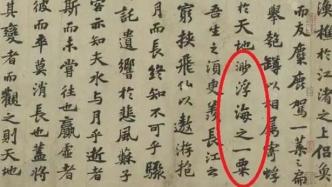 漁樵於江渚之上侶魚
而友麋鹿駕一葉之扁
舉匏樽以相属寄蜉
於天地渺浮海之一粟
吾生之須臾羨長江之
窮挾飛仙以遨遊抱
而長終知不可乎驟
託遺響於悲風蘇子
客亦知夫水與月乎逝
斯而未嘗往也贏虛者
彼而卒莫消長也蓋將
其變者而觀之則天地